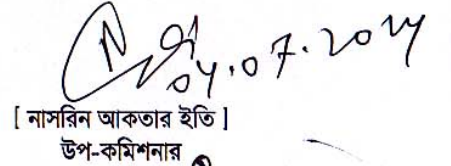 04.07.2024
[ নাসরিন আকতার ইতি ]
উপ-কমিশনার